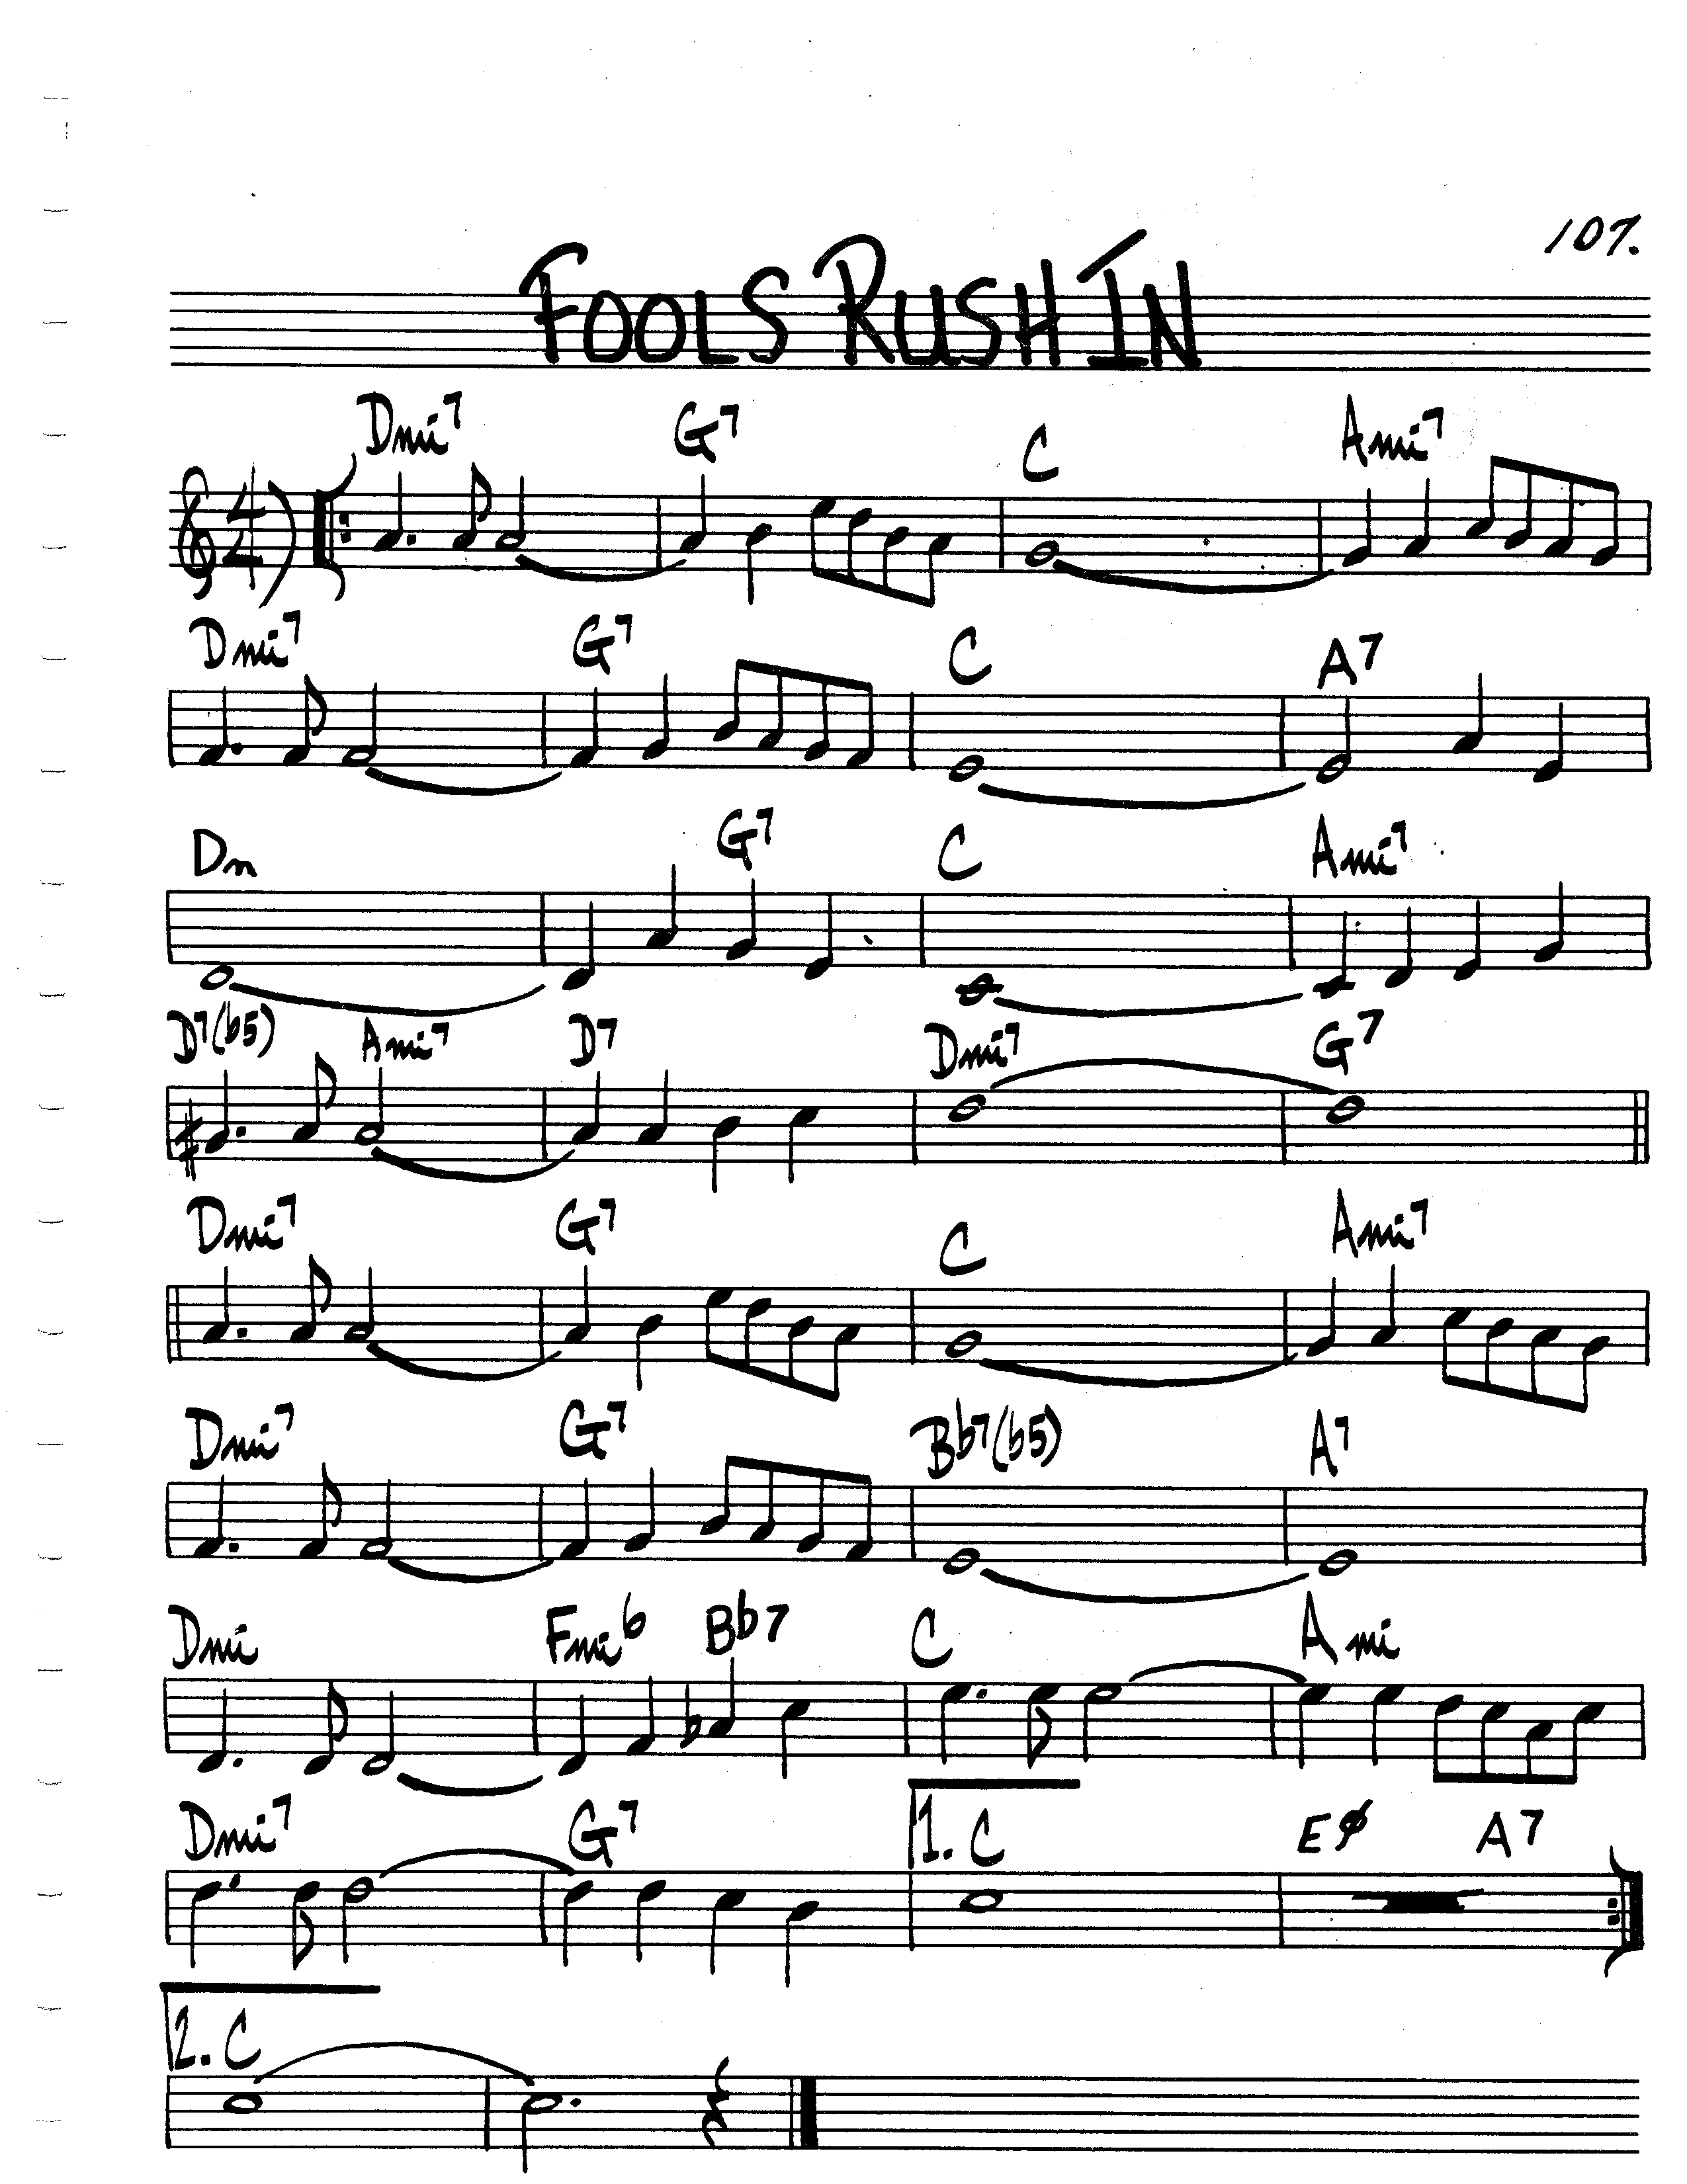 107.
FOOLS RUSH IN
Dmi7 G7 C Ami7
4
4
Dmi7 G7 C A7
Dm G7 C Ami7
D7(b5) Ami7 D7 Dmi7 G7
Dmi7 G7 C Ami7
Dmi7 G7 Bb7(b5) A7
Dmi Fmi6 Bb7 C Ami
Dmi7 G7 1. C Eø A7
2. C